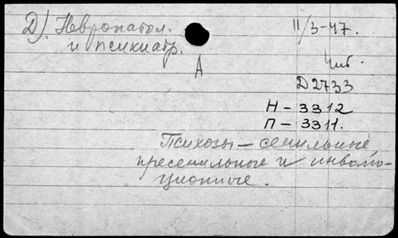 Д). Невропатол.
и психиатр.
11/3-47.
А
Чит.
Д2733
Н-3312
П-3311.
Психозы - сенильные
пресенильные и инволю-
ционные.